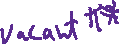 vacant π*